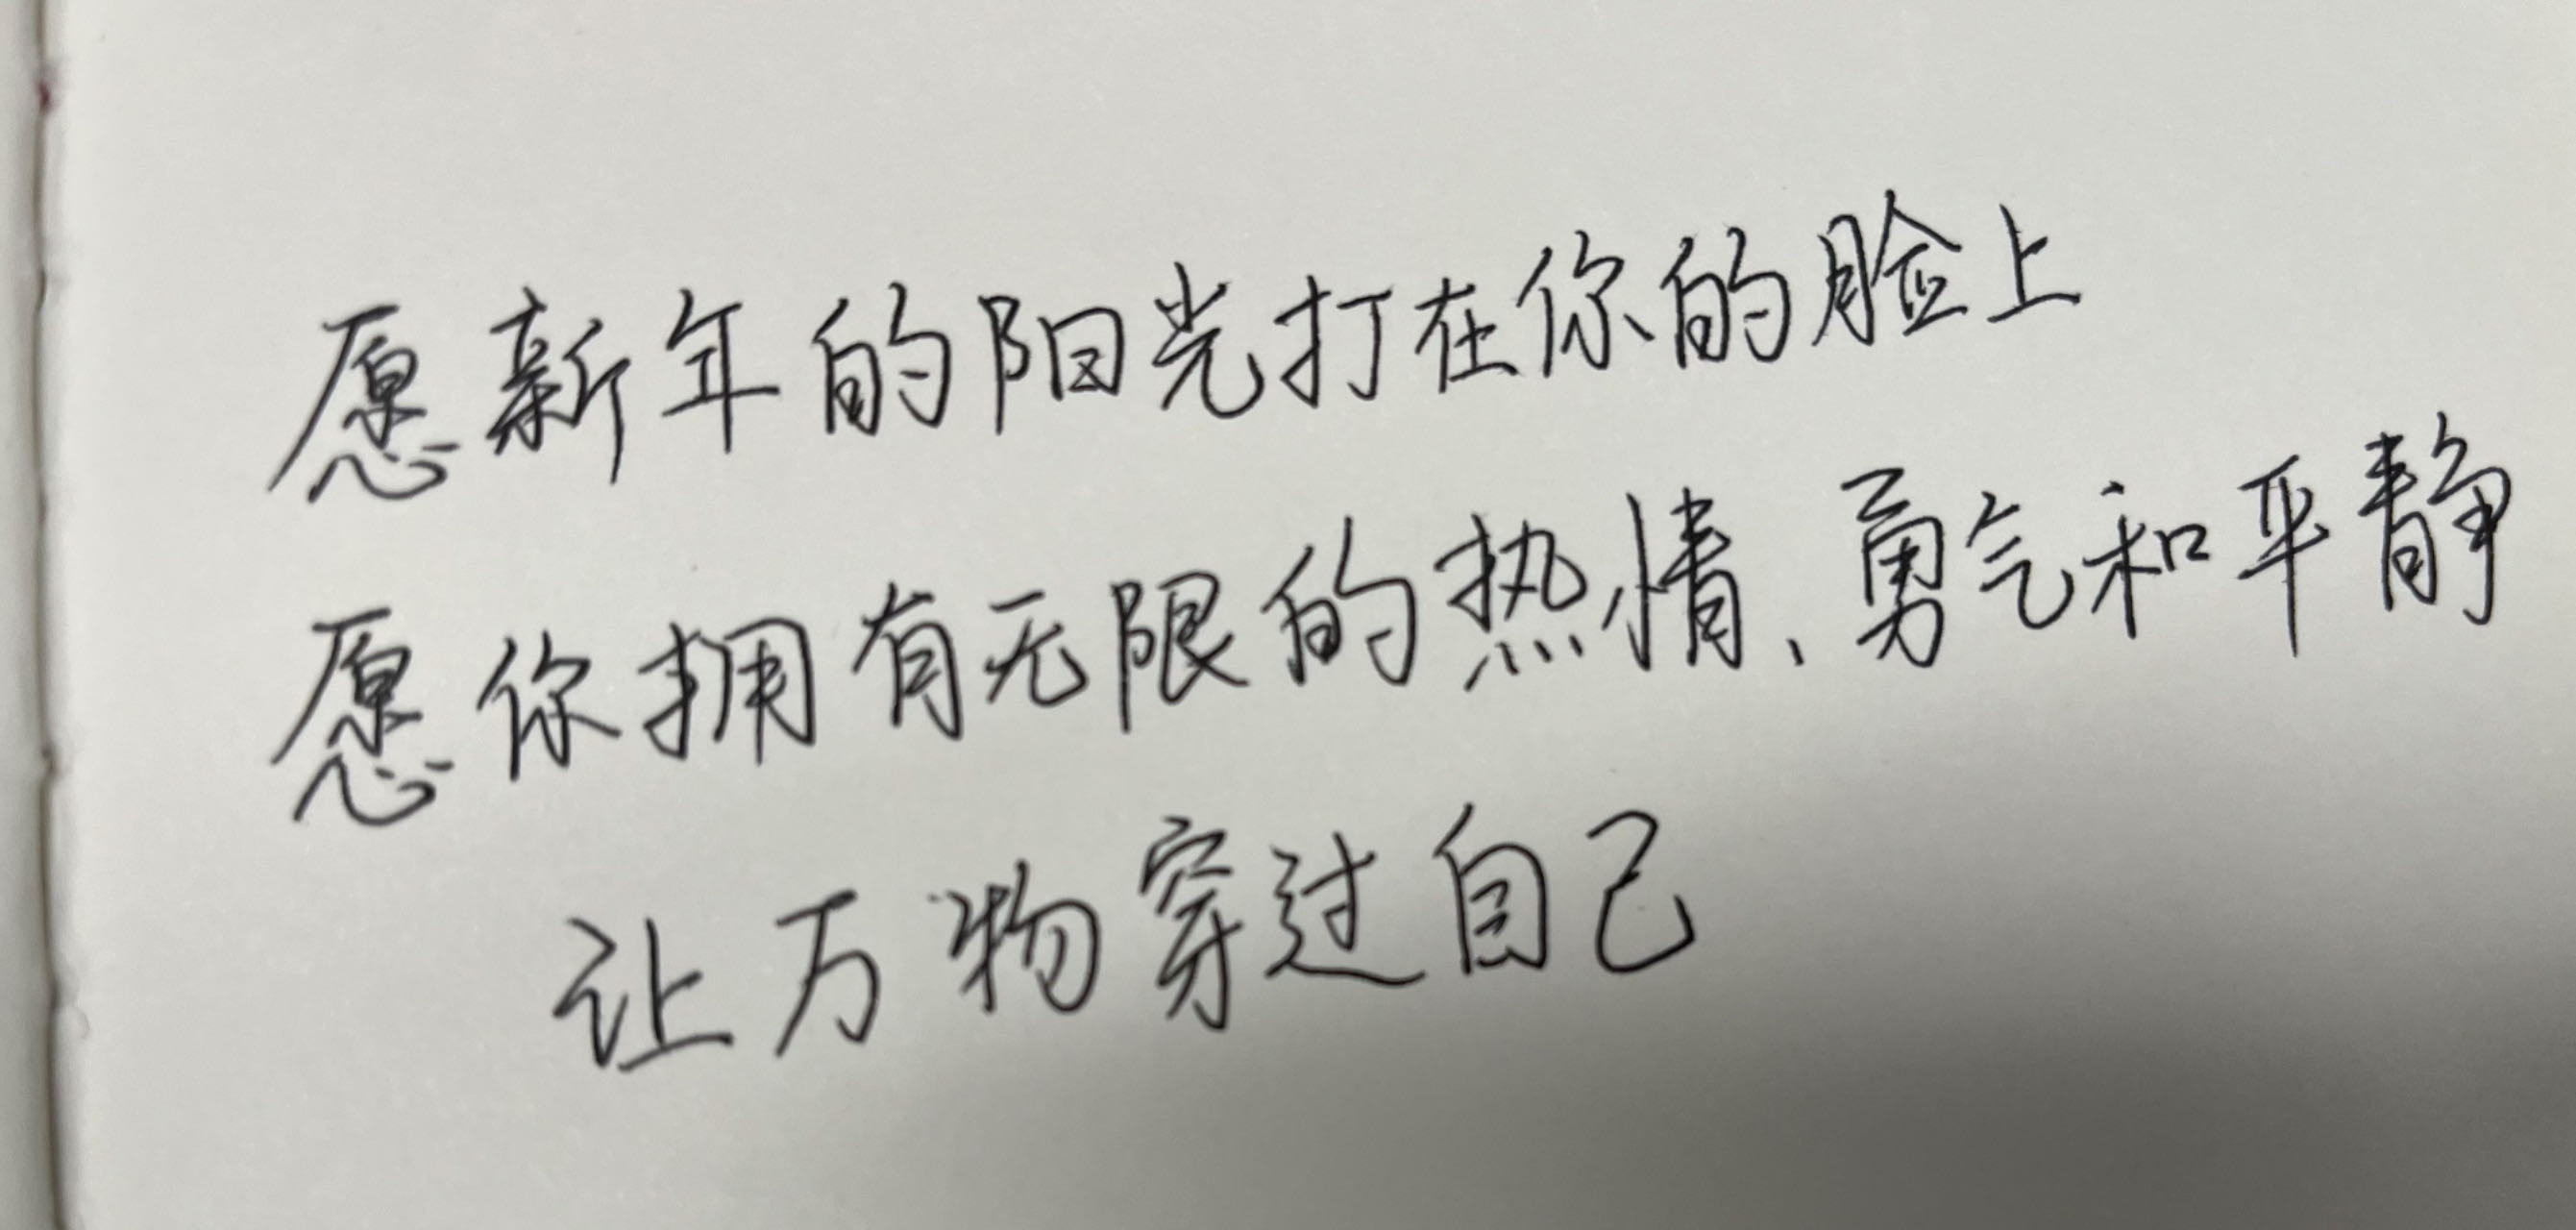 愿新年的阳光打在你的脸上
愿你拥有无限的热情、勇气和平静
让万物穿过自己